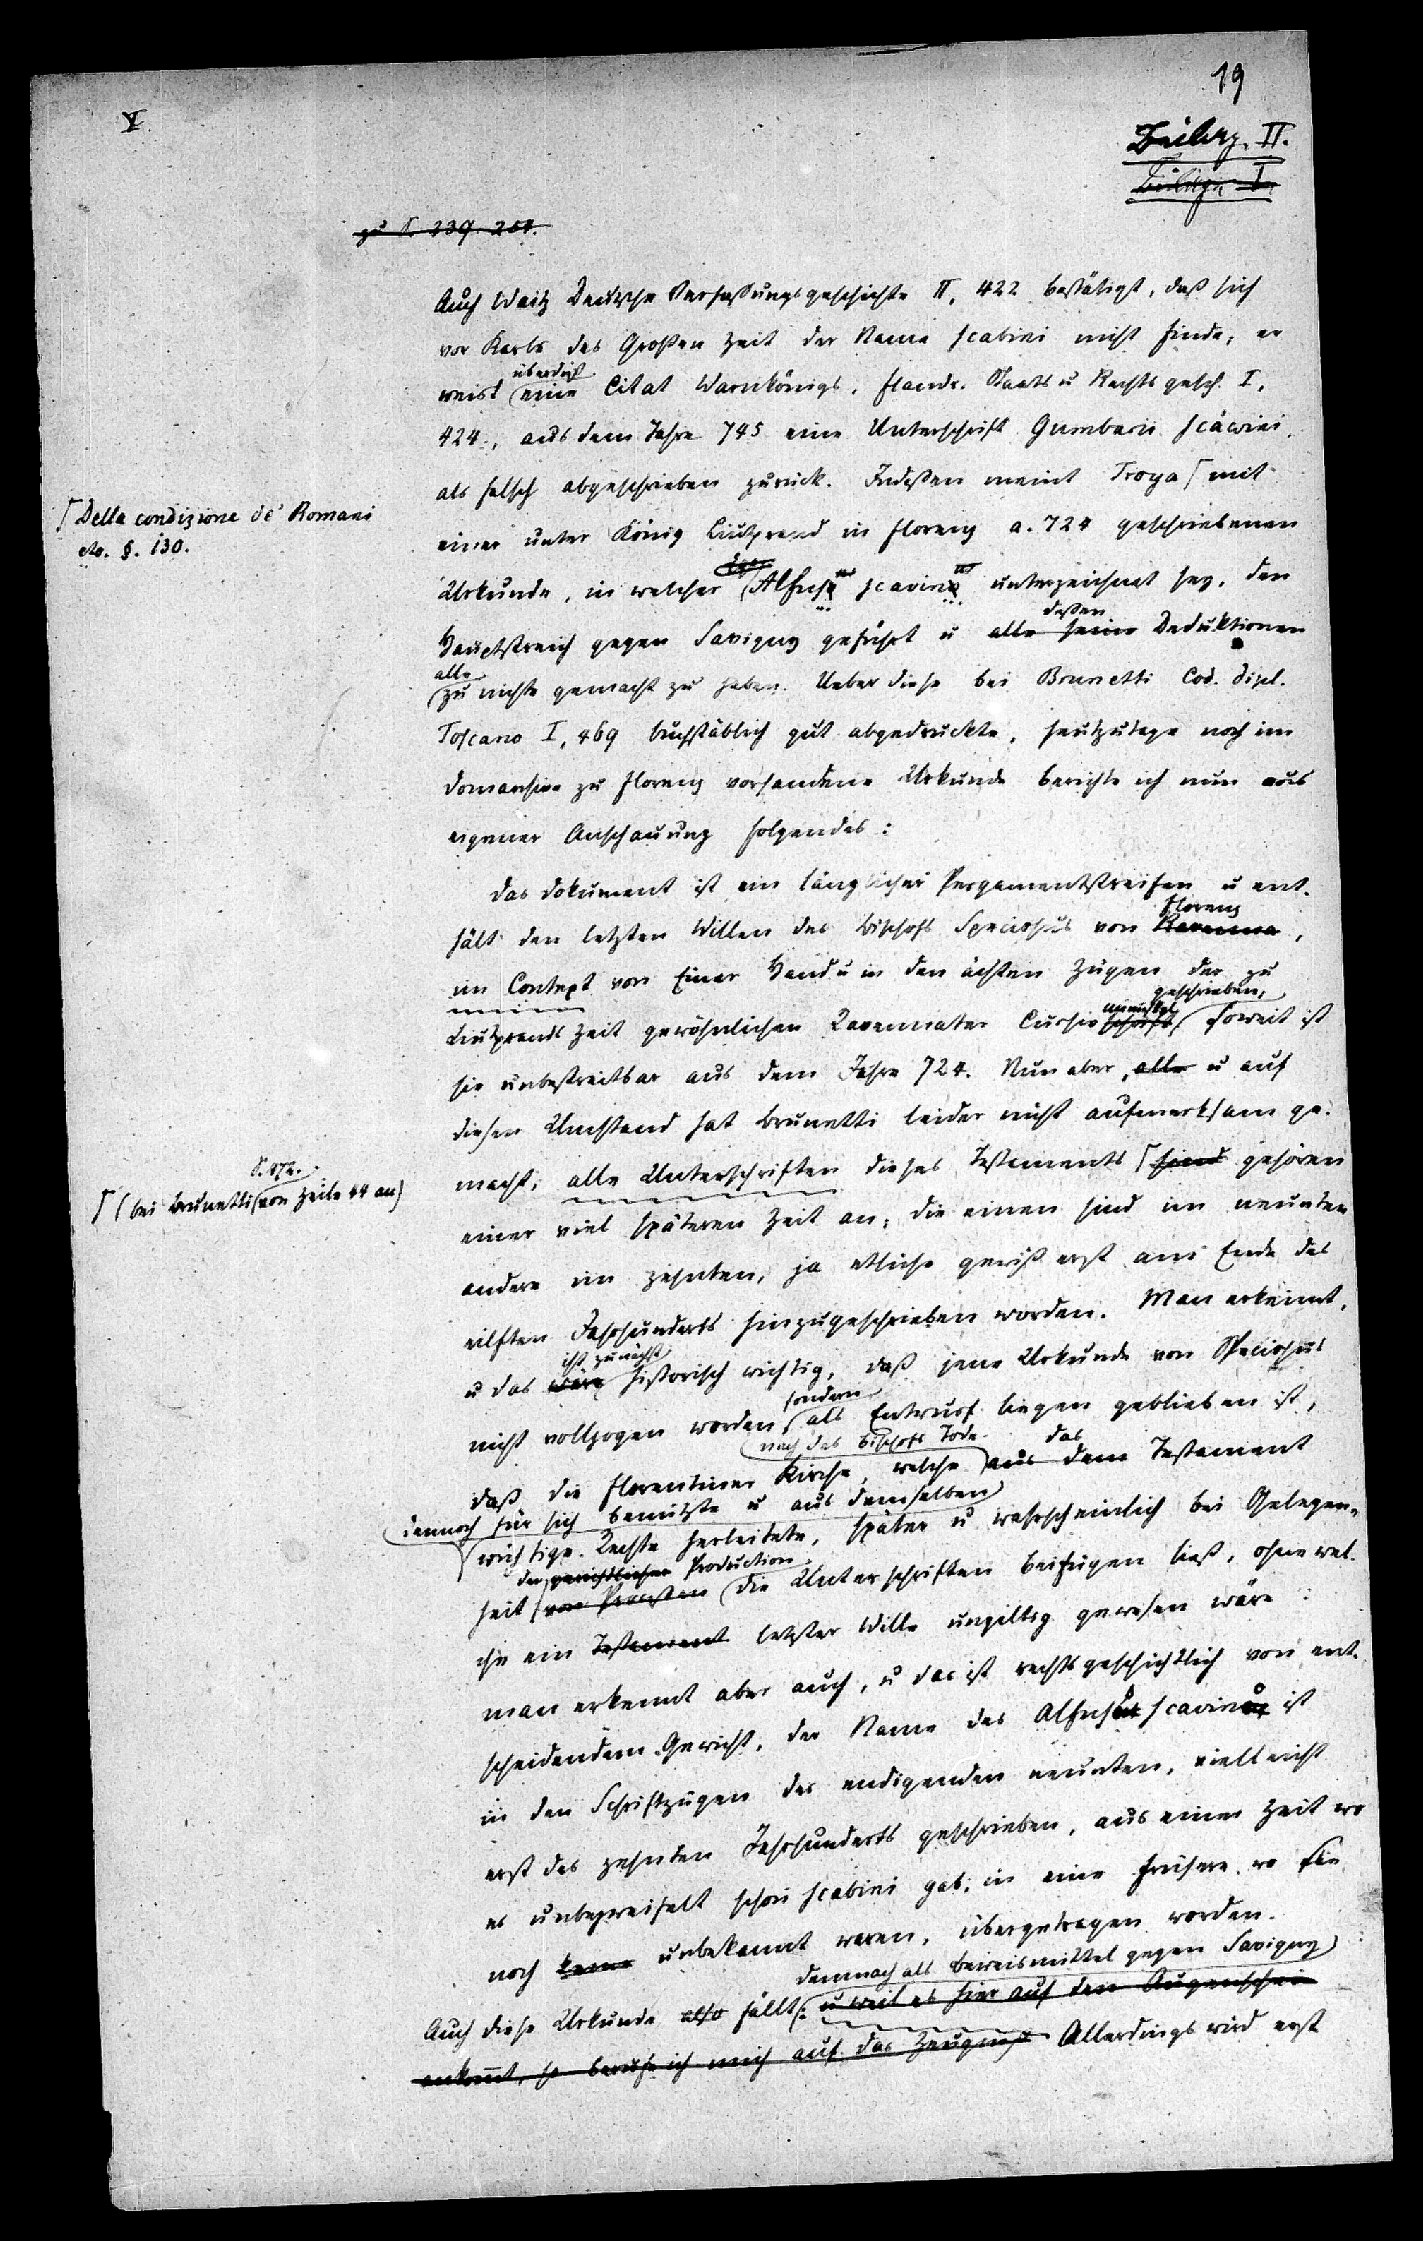 19
V
Beilag. II.
Beilage I.
zu S. 239. 251.
Auch Waitz Deutsche Verfassungsgeschichte II, 422 bestätigt, daß sich
vor Karls des Großen Zeit der Name scabini nicht finde; er
überdieß
weist eine Citat Warnkönigs, flandr. Staats u Rechtsgesch. I,
424., aus dem Jahre 745 eine Unterschrift Gumbarii scávini,
als falsch abgeschrieben zurück. Indeßen meint Troya ⌈ mit
⌈ Della condizione de' Romani
etc. §. 130.
einer unter König Liutprand in Florenz a. 724 geschriebenen
Urkunde, in welcher Alfuso scavino unterzeichnet sey, den
deßen
Hauptstreich gegen Savigny geführt u alle seine Deduktionen
alle
zu nichte gemacht zu haben. Ueber diese bei Brunetti Cod. dipl.
Toscano I, 469 buchstäblich gut abgedruckte, heutzutage noch im
Domarchive zu Florenz vorhandene Urkunde berichte ich nun aus
eigener Anschauung folgendes:
Das Dokument ist ein länglicher Pergamentstreifen u ent-
Florenz
hält den letzten Willen des Bischofs Speciosus von Ravenna,
im Contept von Einer Hand u in den ächten Zügen der zu
geschrieben,
Liutprands Zeit gewöhnlichen Ravennater Cursivschrift, soweit ist
sie unbestreitbar aus dem Jahre 724. Nun aber, alle u auf
diesen Umstand hat Brunetti leider nicht aufmerksam ge-
macht, alle Unterschriften dieses Testaments ⌈ sind gehören
S. 472.
⌈ (bei Brunetti von Zeile 44 an)
einer viel späteren Zeit an, die einen sind im neunten
andere im zehnten, ja etliche gewiß erst am Ende des
eilften Jahrhunderts hinzugeschrieben worden. Man erkennt,
ist zunächst
u das wäre historisch wichtig, daß jene Urkunde von Speciosus
sondern
nicht vollzogen worden, als Entwurf liegen geblieben ist,
nach des Bischofs Tode das
daß die Florentiner Kirche, welche aus dem Testament
dennoch für sich benutzte u aus demselben
wichtige Rechte herleitete, später u wahrscheinlich bei Gelegen-
der gerichtlichen Production
heit von Proceßen die Unterschriften beifügen ließ, ohne wel-
che ein Testament letzter Wille ungiltig gewesen wäre:
man erkennt aber auch, u das ist rechtsgeschichtlich von ent-
scheidendem Gewicht, der Name des Alfuso scavino ist
in den Schriftzügen des endigenden neunten, vielleicht
erst des zehnten Jahrhunderts geschrieben, aus einer Zeit wo
es unbezweifelt schon scabini gab, in eine frühere, wo sie
noch keine unbekannt waren, übergetragen worden.
demnach als Beweismittel gegen Savigny
Auch diese Urkunde also fällt: u weil es hier auf den Augenschein
ankommt, so berufe ich mich auf das Zeugniß Allerdings wird erst